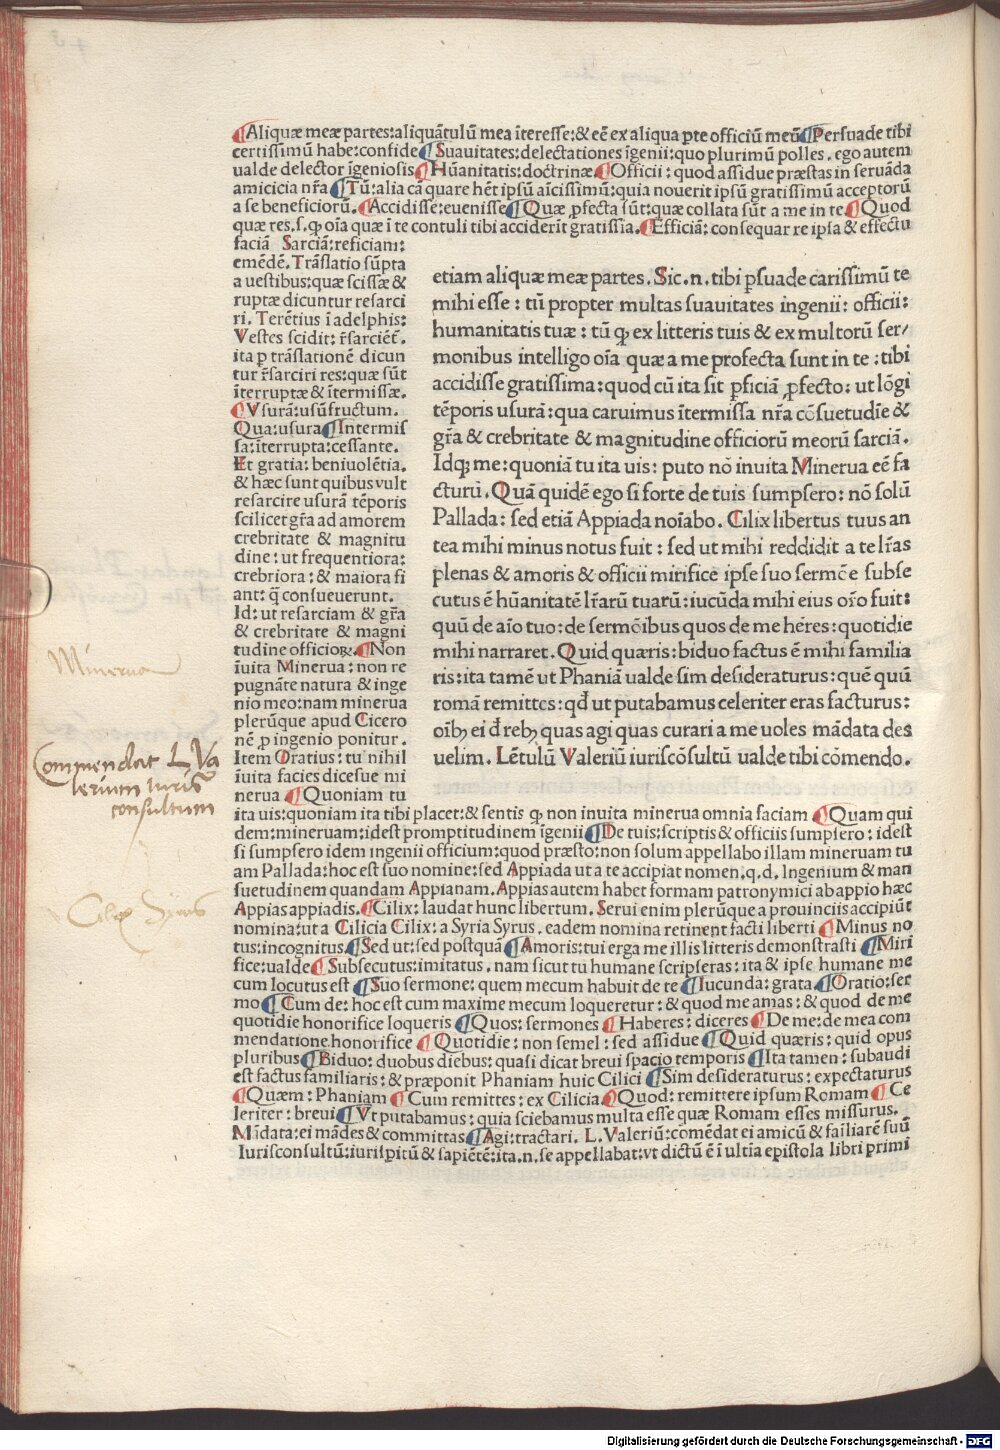 ¶Aliquæ meæ partes:aliquãtulũ mea ĩteresse:& eẽ ex aliqua ꝑte officiũ meũ¶Persuade tibi
certissimũ habe:confide¶Suauitates:delectationes ĩgenii:quo plurimũ polles. ego autem
ualde delector ĩgeniosis¶Hũanitatis:doctrinæ¶Officii: quod assidue præstas in seruãda
amicicia nr̃a ¶Tũ:alia cã quare hẽt ipsũ aĩcissimũ:quia nouerit ipsũ gratissimũ acceptorũ
a se beneficiorũ.¶Accidisse:euenisse¶Quæ ꝓfecta sũt:quæ collata sũt a me in te¶Quod
quæ res.s.ꝙ oĩa quæ ĩ te contuli tibi acciderit gratissia.¶Efficiã:consequar re ipsa & effectu
faciã Sarciã:reficiam:
emẽdẽ.Trãslatio sũpta
a uestibus:quæ scissæ &
ruptæ dicuntur resarci
ri. Terẽtius ĩ adelphis:
Vestes scidit: r̃sarciẽt̃.
ita ꝑ trãslationẽ dicun
tur r̃sarciri res:quæ sũt
ĩterruptæ & ĩtermissæ.
¶Vsurã:usũfructum.
Qua:usura¶Intermis
sa:ĩterrupta:cessante.
Et gratia: beniuolẽtia.
& hæc sunt quibus vult
resarcire usurã tẽporis
scilicet gr̃a ad amorem
crebritate & magnitu
dine: ut frequentiora:
crebriora: & maiora fi
ant: q̃ consueuerunt.
Id: ut resarciam & gr̃a
& crebritate & magni
tudine officioꝝ.¶Non
ĩuita Minerua: non re
pugnãte natura & inge
nio meo:nam minerua
plerũque apud Cicero
nẽ ꝑ ingenio ponitur.
Item Oratius: tu nihil
ĩuita facies dicesue mi
nerua ¶Quoniam tu
etiam aliquæ meæ partes. Sic.n.tibi ꝑsuade carissimũ te
mihi esse: tũ propter multas suauitates ingenii: officii:
humanitatis tuæ: tũ ꝙ ex litteris tuis & ex multorũ ser/
monibus intelligo oĩa quæ a me profecta sunt in te: tibi
accidisse gratissima:quod cũ ita sit ꝑficiã ꝓfecto: ut lõgi
tẽporis usurã: qua caruimus ĩtermissa nr̃a cõsuetudĩe &
gr̃a & crebritate & magnitudine officiorũ meorũ sarciã.
Idqꝫ me: quoniã tu ita uis: puto nõ inuita Minerua eẽ fa
cturũ. Quã quidẽ ego si forte de tuis sumpsero: nõ solũ
Pallada: sed etiã Appiada noĩabo. Cilix libertus tuus an
tea mihi minus notus fuit: sed ut mihi reddidit a te lr̃as
plenas & amoris & officii mirifice ipse suo sermõe subse
cutus ẽ hũanitatẽ lr̃arũ tuarũ: iucũda mihi eius or̃o fuit:
quũ de aĩo tuo: de sermõibus quos de me hẽres: quotidie
mihi narraret. Quid quæris: biduo factus ẽ mihi familia
ris: ita tamẽ ut Phaniã ualde sim desideraturus: quẽ quũ
romã remittes: qd̃ ut putabamus celeriter eras facturus:
oĩbꝫ ei d̃ rebꝫ quas agi quas curari a me uoles mãdata des
uelim. Lẽtulũ Valeriũ iuriscõsultũ ualde tibi cõmendo.
ita uis:quoniam ita tibi placet:& sentis ꝙ non inuita minerua omnia faciam ¶Quam qui
dem:mineruam:idest promptitudinem ĩgenii¶De tuis:scriptis & officiis sumpsero: idest
si sumpsero idem ingenii officium:quod præsto:non solum appellabo illam mineruam tu
am Pallada:hoc est suo nomine:sed Appiada ut a te accipiat nomen.q.d. Ingenium & man
suetudinem quandam Appianam.Appias autem habet formam patronymici ab appio hæc
Appias appiadis.¶Cilix:laudat hunc libertum. Serui enim plerũque a prouinciis accipiũt
nomina:ut a Cilicia Cilix: a Syria Syrus. eadem nomina retinent facti liberti ¶Minus no
tus:incognitus.¶Sed ut:sed postquã¶Amoris:tui erga me illis litteris demonstrasti ¶Miri
fice:ualde¶Subsecutus:imitatus. nam sicut tu humane scripseras: ita & ipse humane me
cum locutus est ¶Suo sermone: quem mecum habuit de te ¶Iucunda: grata ¶Oratio:ser
mo ¶Cum de: hoc est cum maxime mecum loqueretur: & quod me amas: & quod de me
quotidie honorifice loqueris ¶Quos: sermones ¶Haberes: diceres ¶De me: de mea com
mendatione honorifice ¶Quotidie: non semel: sed assidue ¶Quid quæris: quid opus
pluribus ¶Biduo: duobus diebus: quasi dicat breui spacio temporis ¶Ita tamen: subaudi
est factus familiaris: & præponit Phaniam huic Cilici ¶Sim desideraturus: expectaturus
¶Quæm: Phaniam ¶Cum remittes: ex Cilicia.¶Quod: remittere ipsum Romam ¶Ce
leriter: breui ¶Vt putabamus: quia sciebamus multa esse quæ Romam esses missurus.
Mãdata:ei mãdes & committas ¶Agi:tractari. L.Valeriũ:comẽdat ei amicũ & faĩliarẽ suũ
Iurisconsultũ:iurispitũ & sapiẽtẽ:ita.n.se appellabat:vt dictũ ẽ ĩ ultia epistola libri primi
Minerua
Commendat L Va
lerium Iuris
consultum
Cilix Syrus
Digitalisierung gefördert durch die Deutsche Forschungsgemeinschaft - DFG